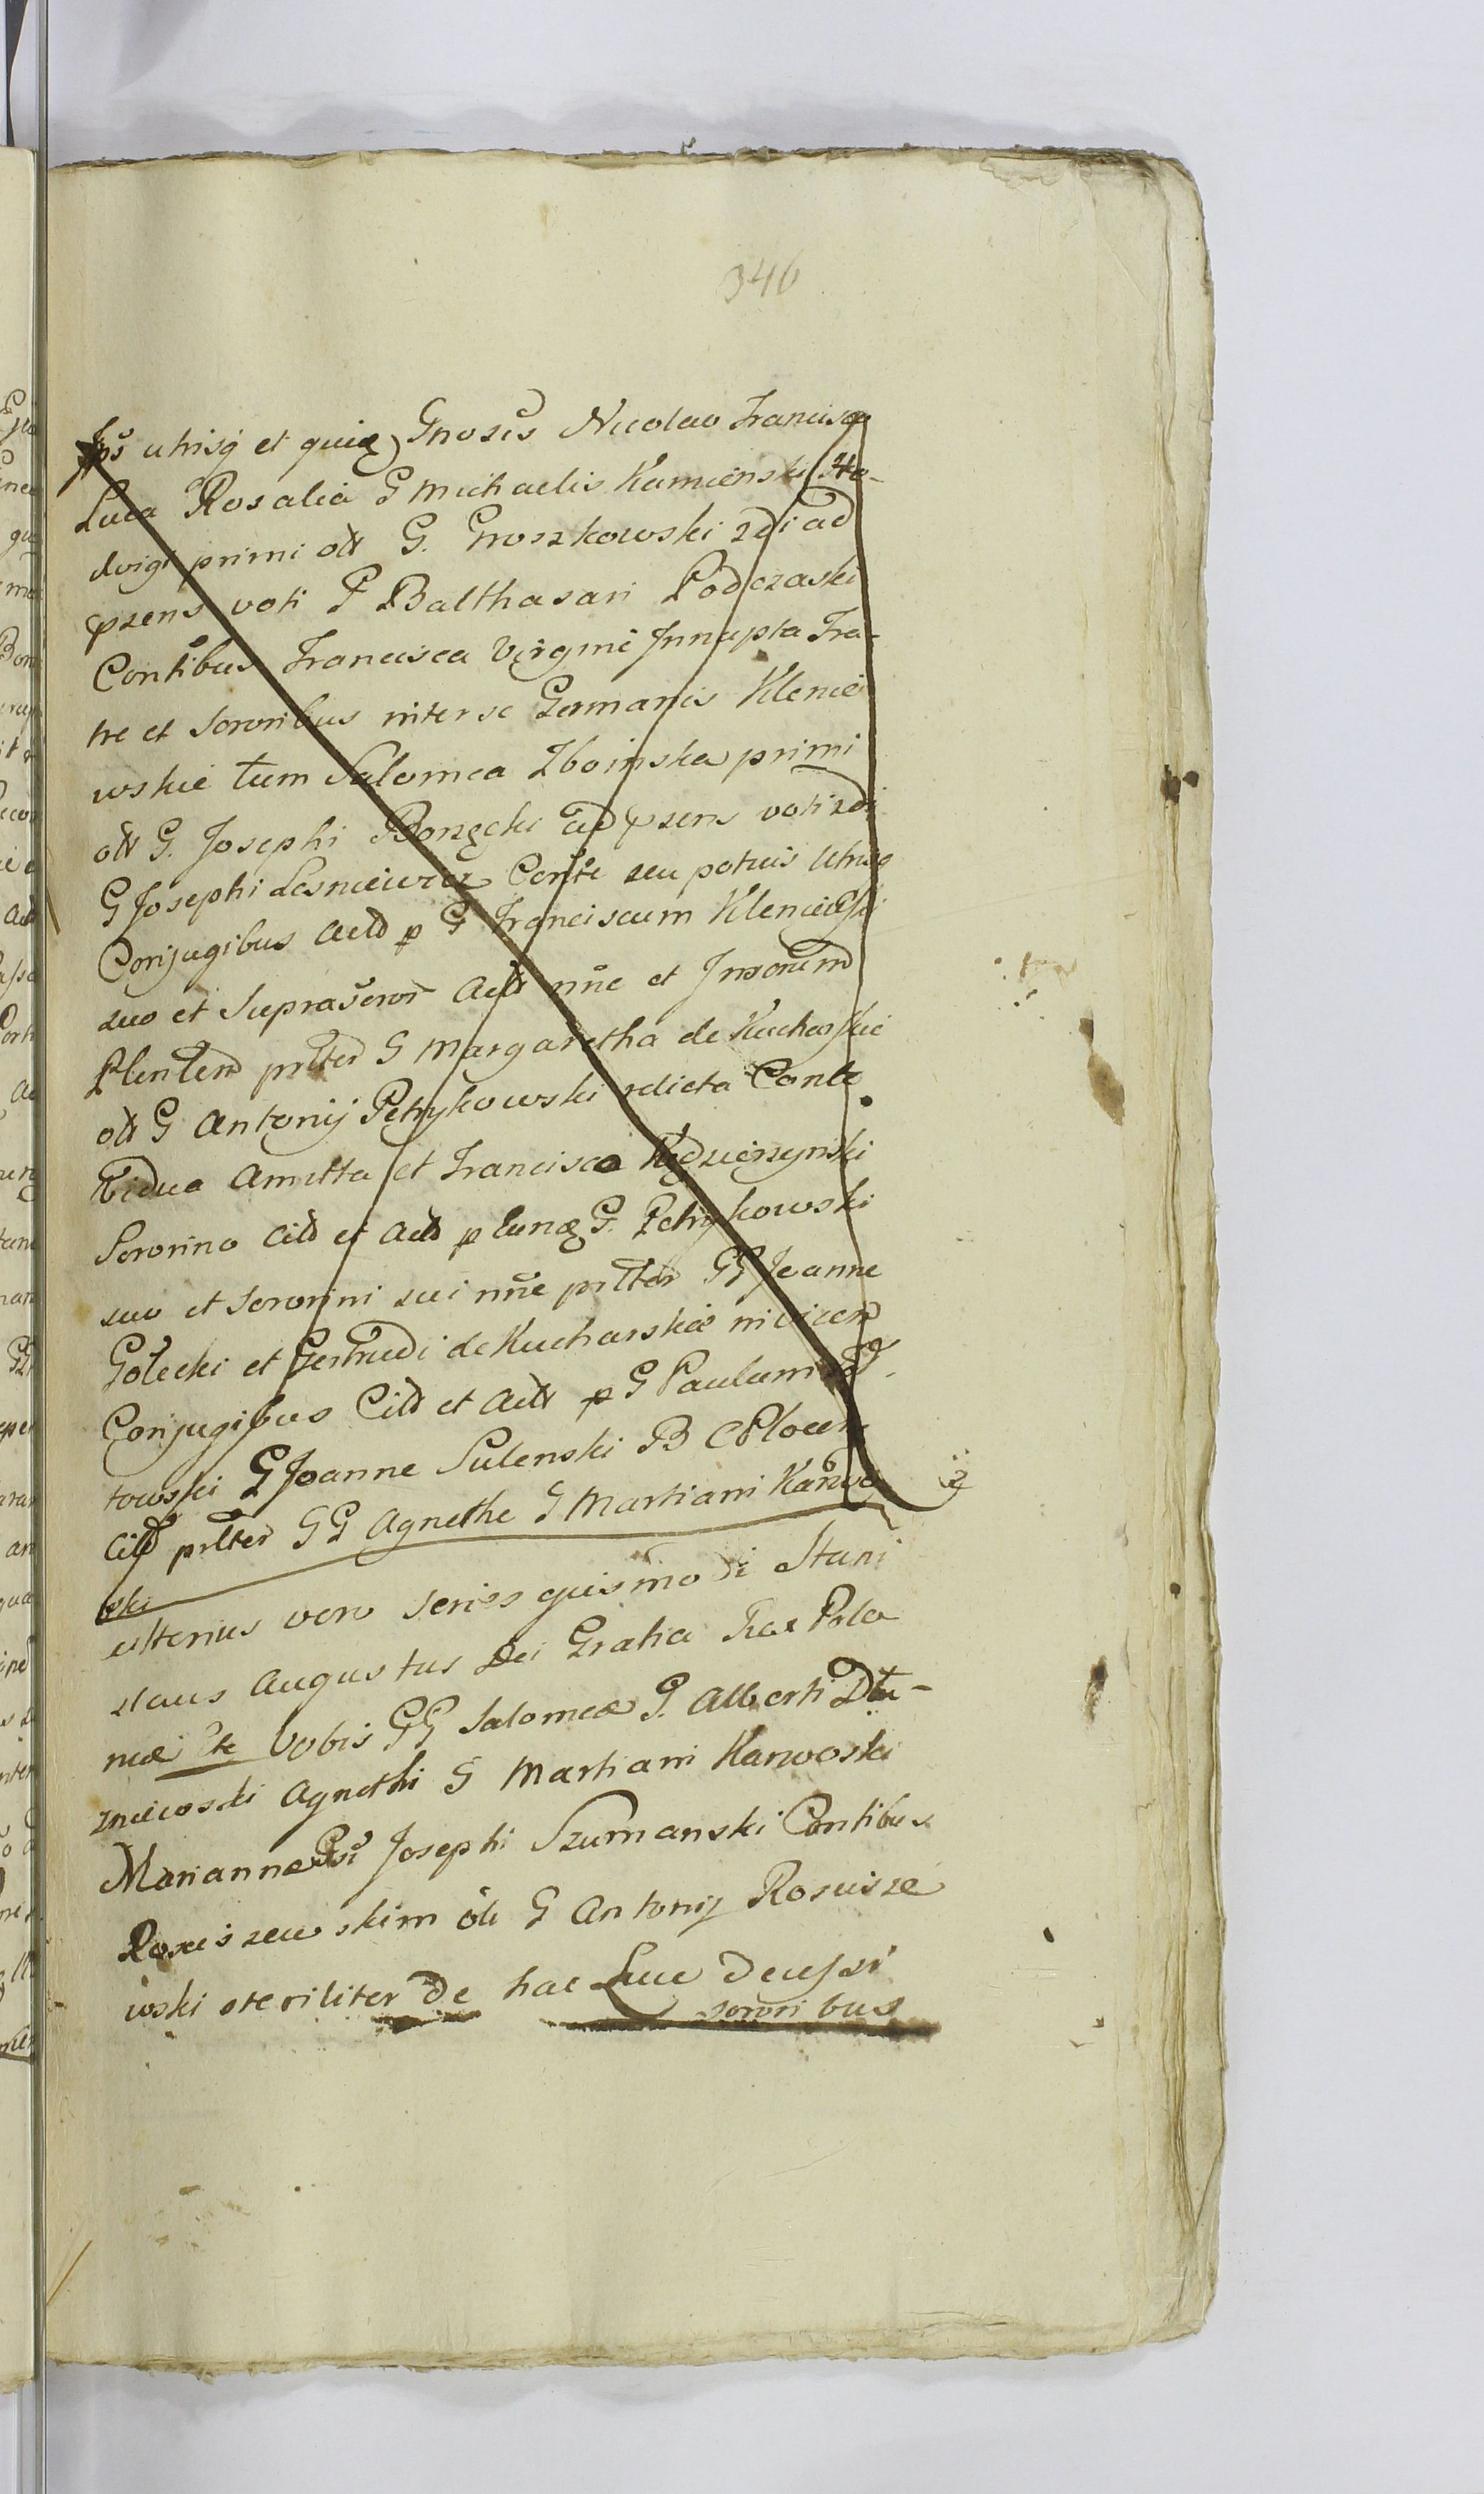 346
utrisq et Gnosis Nicolao Francisco
Luca Rosalia G Michaelis Kamienski He-
dvigi primi olt G. Groszkowski 2di ad
prens voti G Balthasari Podczaski
Contibus Francisca Virgine Innupta Fra-
tre et Sororibus inter se Germanis Klenie
wskie tum Salomea Zboinska primi
olt G. Josephi ad prens voti 2di
G Josephi Lesniewicz Conte seu potius Utrisq
Conjugibus Actt p G Franciscum Kleniewski
suo et Supra Soror Actt nne et
Plentem prlter G Margaretha de Kucharskie
olt G Antonij Petrykowski relicta Conte
Vidua Amitta et Francisco
Sororino Citt et Actt p Eunq G. Petrykowski
suo et Sororini sui nne prlter GG Joanne
Golecki et Gertrudi de Kucharskie invicem
Conjugibus Citt et Actt p G Paulum
towski G Joanne Sulenski B
Citt prlter GG Agnethe G Martiani Karwo
ski
ulterius vero series ejusmodi Stani
slaus Augustus Dei Gratia Rex Polo
niæ Etc Vobis GG Salomeæ G. Alberti Dłu-
zniewoski Agnethi G Martiani Karwoski
Marianne Gsi Josephi Szumanski Contibus
Rosciszewskim olt G Antonij Roscisze
wski steriliter de hac Luce decessi
sororibus